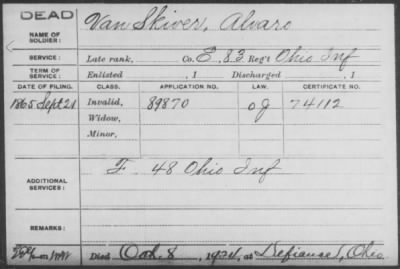 DEAD
NAME OF SOLDIER: Van Skiver, Alvaro
SERVICE: Late rank, Co. E, 83 Reg't Ohio Inf
TERM OF SERVICE: Enlisted , 1 Discharged , 1
DATE OF FILING. CLASS. APPLICATION NO. LAW. CERTIFICATE NO.
1865 Sept 21 Invalid, 89870 o J 74112
Widow,
Minor,
ADDITIONAL SERVICES: F 48 Ohio Inf
REMARKS:
Died Oct. 8, 1924, at Defiance, Ohio.